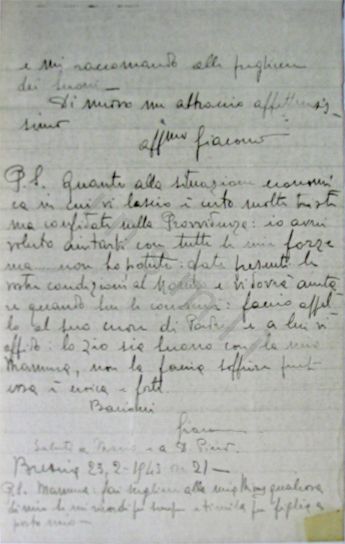 e mi raccomando alle preghiere
dei buoni -
Di nuovo un abbraccio affettuosis-
simo
aff.mo Giacomo
P.S. Quanto alla situazione economi
ca in cui vi lascio è certo molto triste
ma confidate nella Provvidenza: io avrei
voluto aiutarti con tutte le mie forze
ma non ho potuto: fate presenti le
vostre condizioni al e vi dovrà aiuta
re quando lui le conoscerà: faccio appel
lo al suo cuore di Padre e a lui vi
affido: lo zio sia buono con la mia
Mamma, non la faccia soffrire
cosa è eroica e forte.
Bacioni
Giacomo
Saluta e a D. Piero.
Brescia 23-2-1943 ore 21 -
P.S. Mamma: fai scegliere alla mia qualcosa
di mio le mi ricordi per sempre e per figlio e